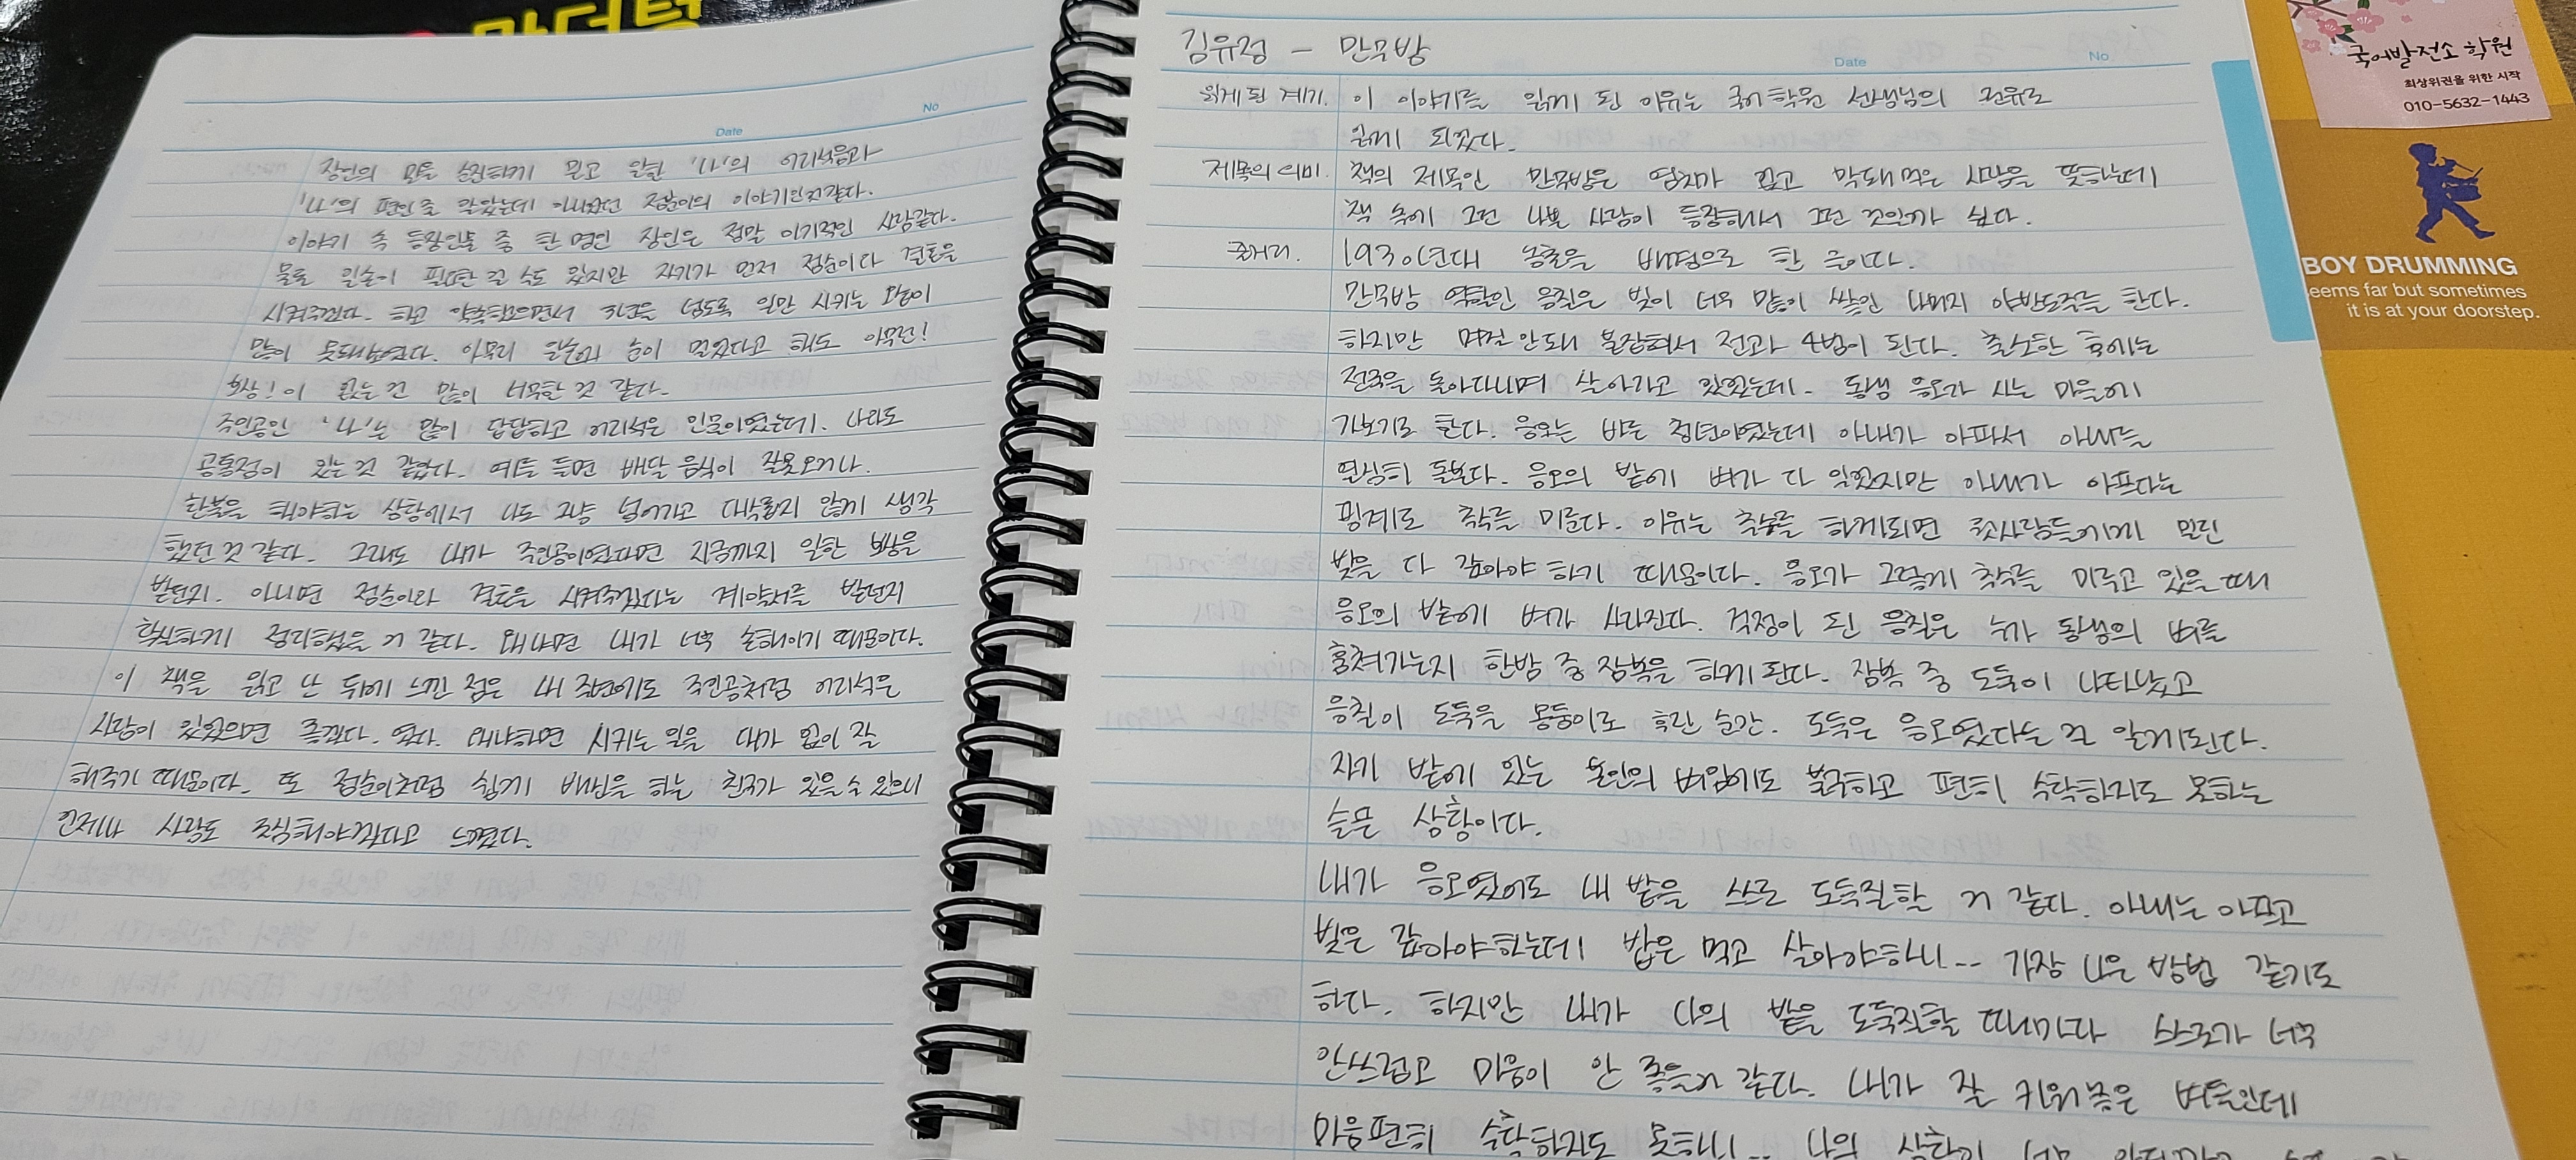 마더텅
No
Date
장인의 말을 순진하게 믿고 일한 '나'의 어리석음과
'나'의 편인 줄 알았는데 아니였던 점순이의 이야기인것같다.
이야기 속 등장인물 중 한 명인 장인은 정말 이기적인 사람같다.
물론 일손이 필요한 걸 수도 있지만 자기가 먼저 점순이랑 결혼을
시켜주겠다. 하고 약속했으면서 3년을 넘도록 일만 시키는 모습이
많이 못돼보였다. 아무리 일손에 눈이 멀었다고 해도 아무런!
보상!이 없는 건 많이 너무한 것 같다.
주인공인 '나'는 많이 답답하고 어리석은 인물이였는데. 나와도
공통점이 있는 것 같았다. 예를 들면 배달 음식이 잘못 오거나.
환불을 해야하는 상황에서 나도 그냥 넘어가고 대수롭지 않게 생각
했던 것 같다. 그래도 내가 주인공이였다면 지금까지 일한 보상을
받던지. 아니면 점순이와 결혼을 시켜주겠다는 계약서를 받던지
확실하게 정리했을 거 같다. 왜냐면 내가 너무 손해이기 때문이다.
이 책을 읽고 난 뒤에 느낀 점은 내 주변에도 주인공처럼 어리석은
사람이 있었으면 좋겠다. 였다. 왜냐하면 시키는 일을 대가 없이 잘
해주기 때문이다. 또 점순이처럼 쉽게 배신을 하는 친구가 있을 수 있으니
언제나 사람도 조심해야겠다고 느꼈다.
김유정 - 만무방
Date
No
읽게 된 계기. 이 이야기를 읽게 된 이유는 국어학원 선생님의 권유로
읽게 되었다.
제목의 의미. 책의 제목인 만무방은 염치가 없고 막돼먹은 사람을 뜻하는데
책 속에 그런 나쁜 사람이 등장해서 그런 것일까 싶다.
줄거리. 1930년대 농촌을 배경으로 한 글이다.
만무방 역할인 응칠은 빚이 너무 많이 쌓인 나머지 야반도주를 한다.
하지만 며칠 안돼 불잡혀서 전과 4범이 된다. 출소한 후에는
전국을 돌아다니며 살아가고 있었는데. 동생 응오가 사는 마을에
가보기로 한다. 응오는 바른 청년이였는데 아내가 아파서 아내를
열심히 돌본다. 응오의 밭에 벼가 다 익었지만 아내가 아프다는
핑계로 추수를 미룬다. 이유는 추수를 하게되면 윗사람들에게 밀린
빚을 다 갚아야 하기 때문이다. 응오가 그렇게 추수를 미루고 있을 때
응오의 밭에 벼가 사라진다. 걱정이 된 응칠은 누가 동생의 벼를
훔쳐가는지 한밤 중 잠복을 하게 된다. 잠복 중 도둑이 나타났고
응칠이 도둑을 몽둥이로 후린 순간. 도둑은 응오였다는 걸 알게된다.
자기 밭에 있는 본인의 벼임에도 불구하고 편히 수확하지도 못하는
슬픈 상황이다.
내가 응오였어도 내 밭을 스스로 도둑질할 거 같다. 아내는 아프고
빚은 갚아야하는데 밥은 먹고 살아야하니.. 가장 나은 방법 같기도
하다. 하지만 내가 나의 밭을 도둑질할 때마다 스스로가 너무
안쓰럽고 마음이 안 좋을거 같다. 내가 잘 키워놓은 벼들인데
마음편히 수확하지도 못하니.. 나의 상황이 너무
국어발전소 학원
최상위권을 위한 시작
010-5632-1443
BOY DRUMMING
eems far but sometimes
it is at your doorstep.